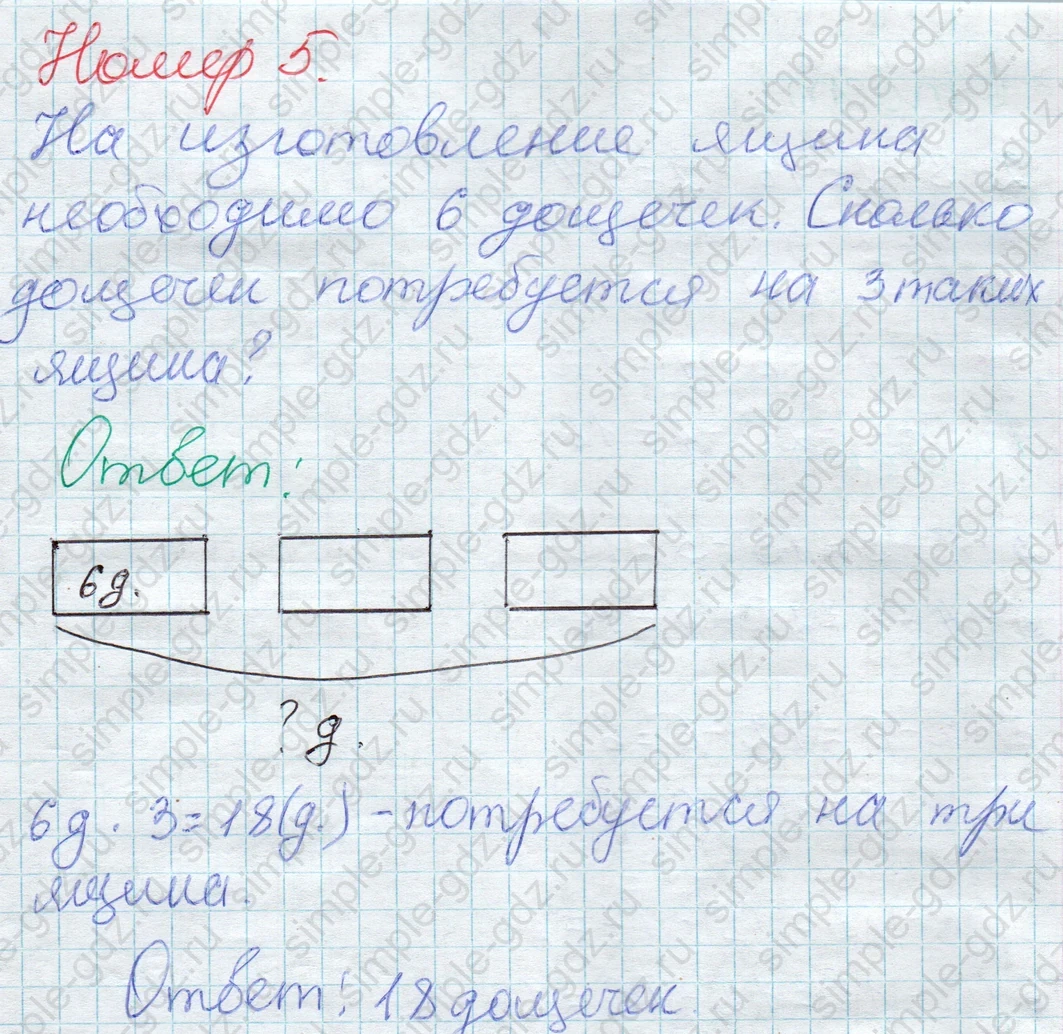 Номер 5.
На изготовление ящика
необходимо 6 дощечек. Сколько
дощечек потребуется на 3 таких
ящика?
Ответ:
6д.
? д.
6д. 3=18(д.) - потребуется на три
ящика.
Ответ: 18 дощечек